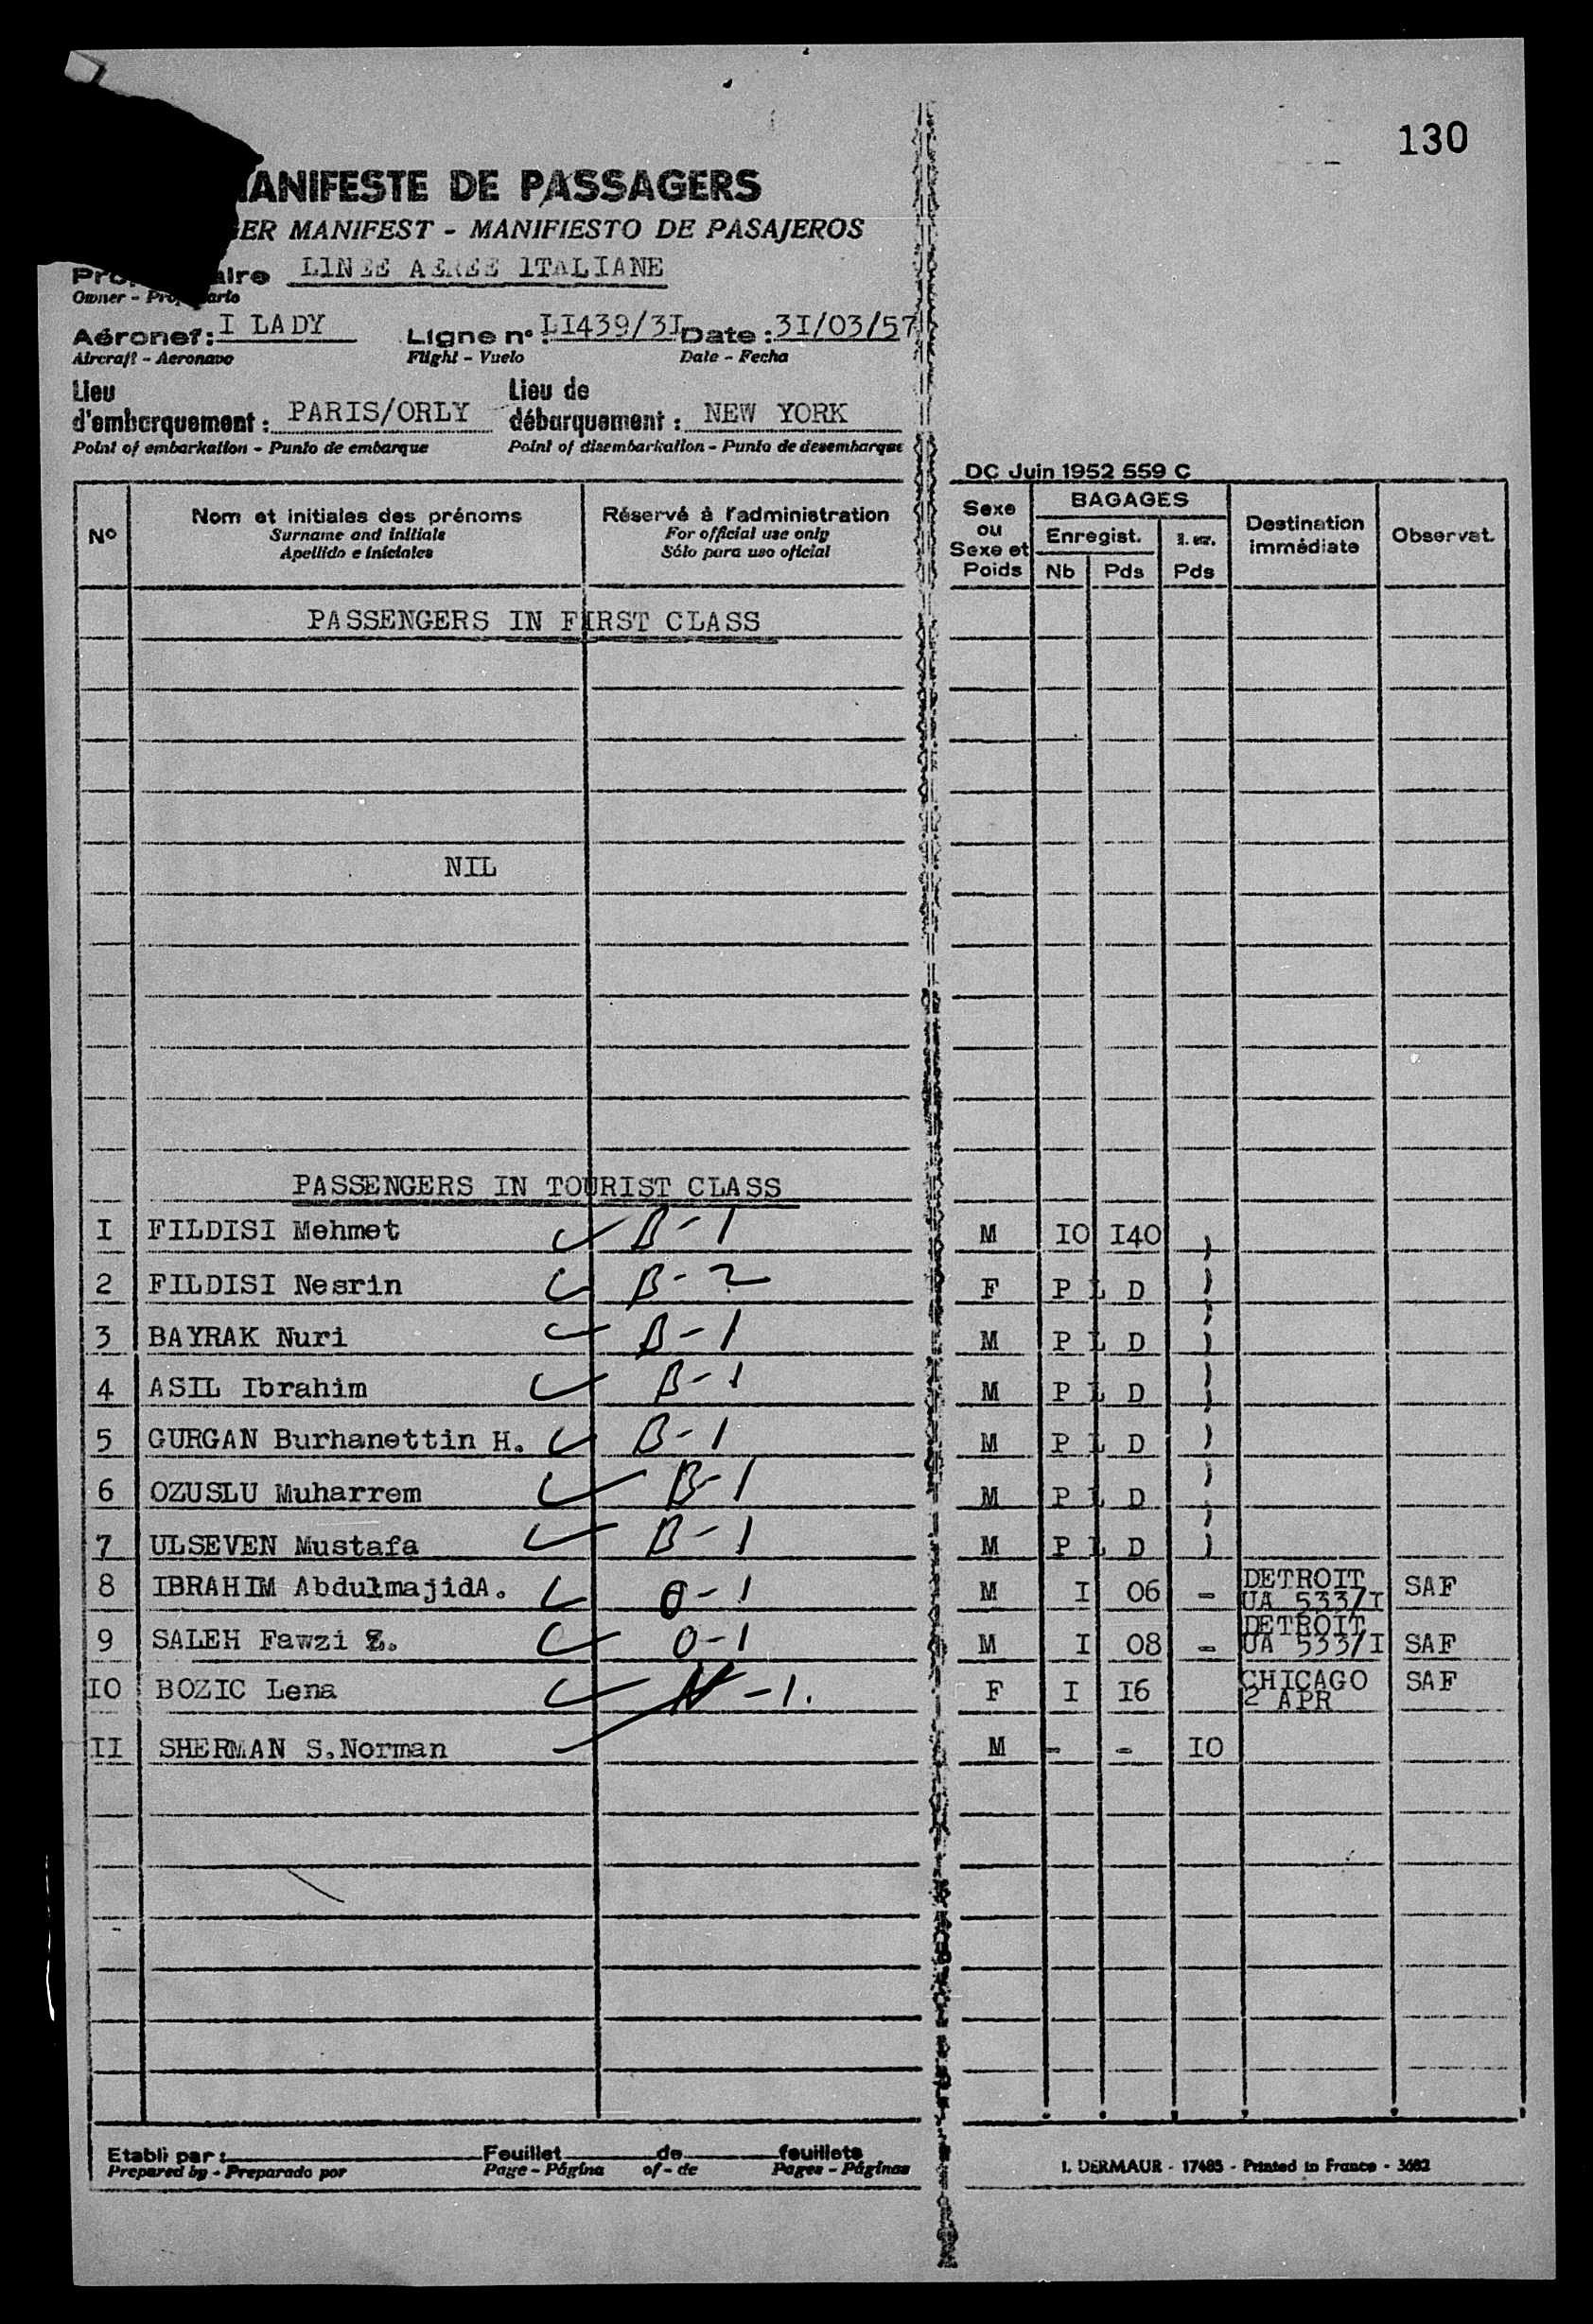 130
ANIFESTE DE PASSAGERS
GER MANIFEST - MANIFIESTO DE PASAJEROS
LINEE AEREE ITALIANE
Owner -
Aéronef: I LADY Ligne n°: LI439/3I Date: 3I/03/57
Aircraft - Aeronave Flight - Vuelo Date - Fecha
Lieu d'embarquement: PARIS/ORLY Lieu de débarquement: NEW YORK
Point of embarkation - Punto de embarque Point of disembarkation - Punto de desembarque
DC Juin 1952 559 C
N° Nom et initiales des prénoms Réservé à l'administration Sexe ou Sexe et Poids BAGAGES Destination immédiate Observat.
Surname and initials For official use only Enregist.
Apellido e iniciales Sólo para uso oficial Nb Pds Pds
PASSENGERS IN FIRST CLASS
NIL
PASSENGERS IN TOURIST CLASS
I FILDISI Mehmet B-1 M IO I40 )
2 FILDISI Nesrin B-2 F P L D )
3 BAYRAK Nuri B-1 M P L D )
4 ASIL Ibrahim B-1 M P L D )
5 GURGAN Burhanettin H. B-1 M P L D )
6 OZUSLU Muharrem B-1 M P L D )
7 ULSEVEN Mustafa B-1 M P L D )
8 IBRAHIM AbdulmajidA. 0-1 M I 06 - DETROIT UA 533/I SAF
9 SALEH Fawzi Z. 0-1 M I 08 - DETROIT UA 533/I SAF
IO BOZIC Lena N-1. F I I6 CHICAGO 2 APR SAF
II SHERMAN S.Norman M - - IO
Etabli par: Feuillet de feuillets
Prepared by - Preparado por Page - Página of - de Pages - Páginas
I. DERMAUR - 17485 - Printed in France - 3682